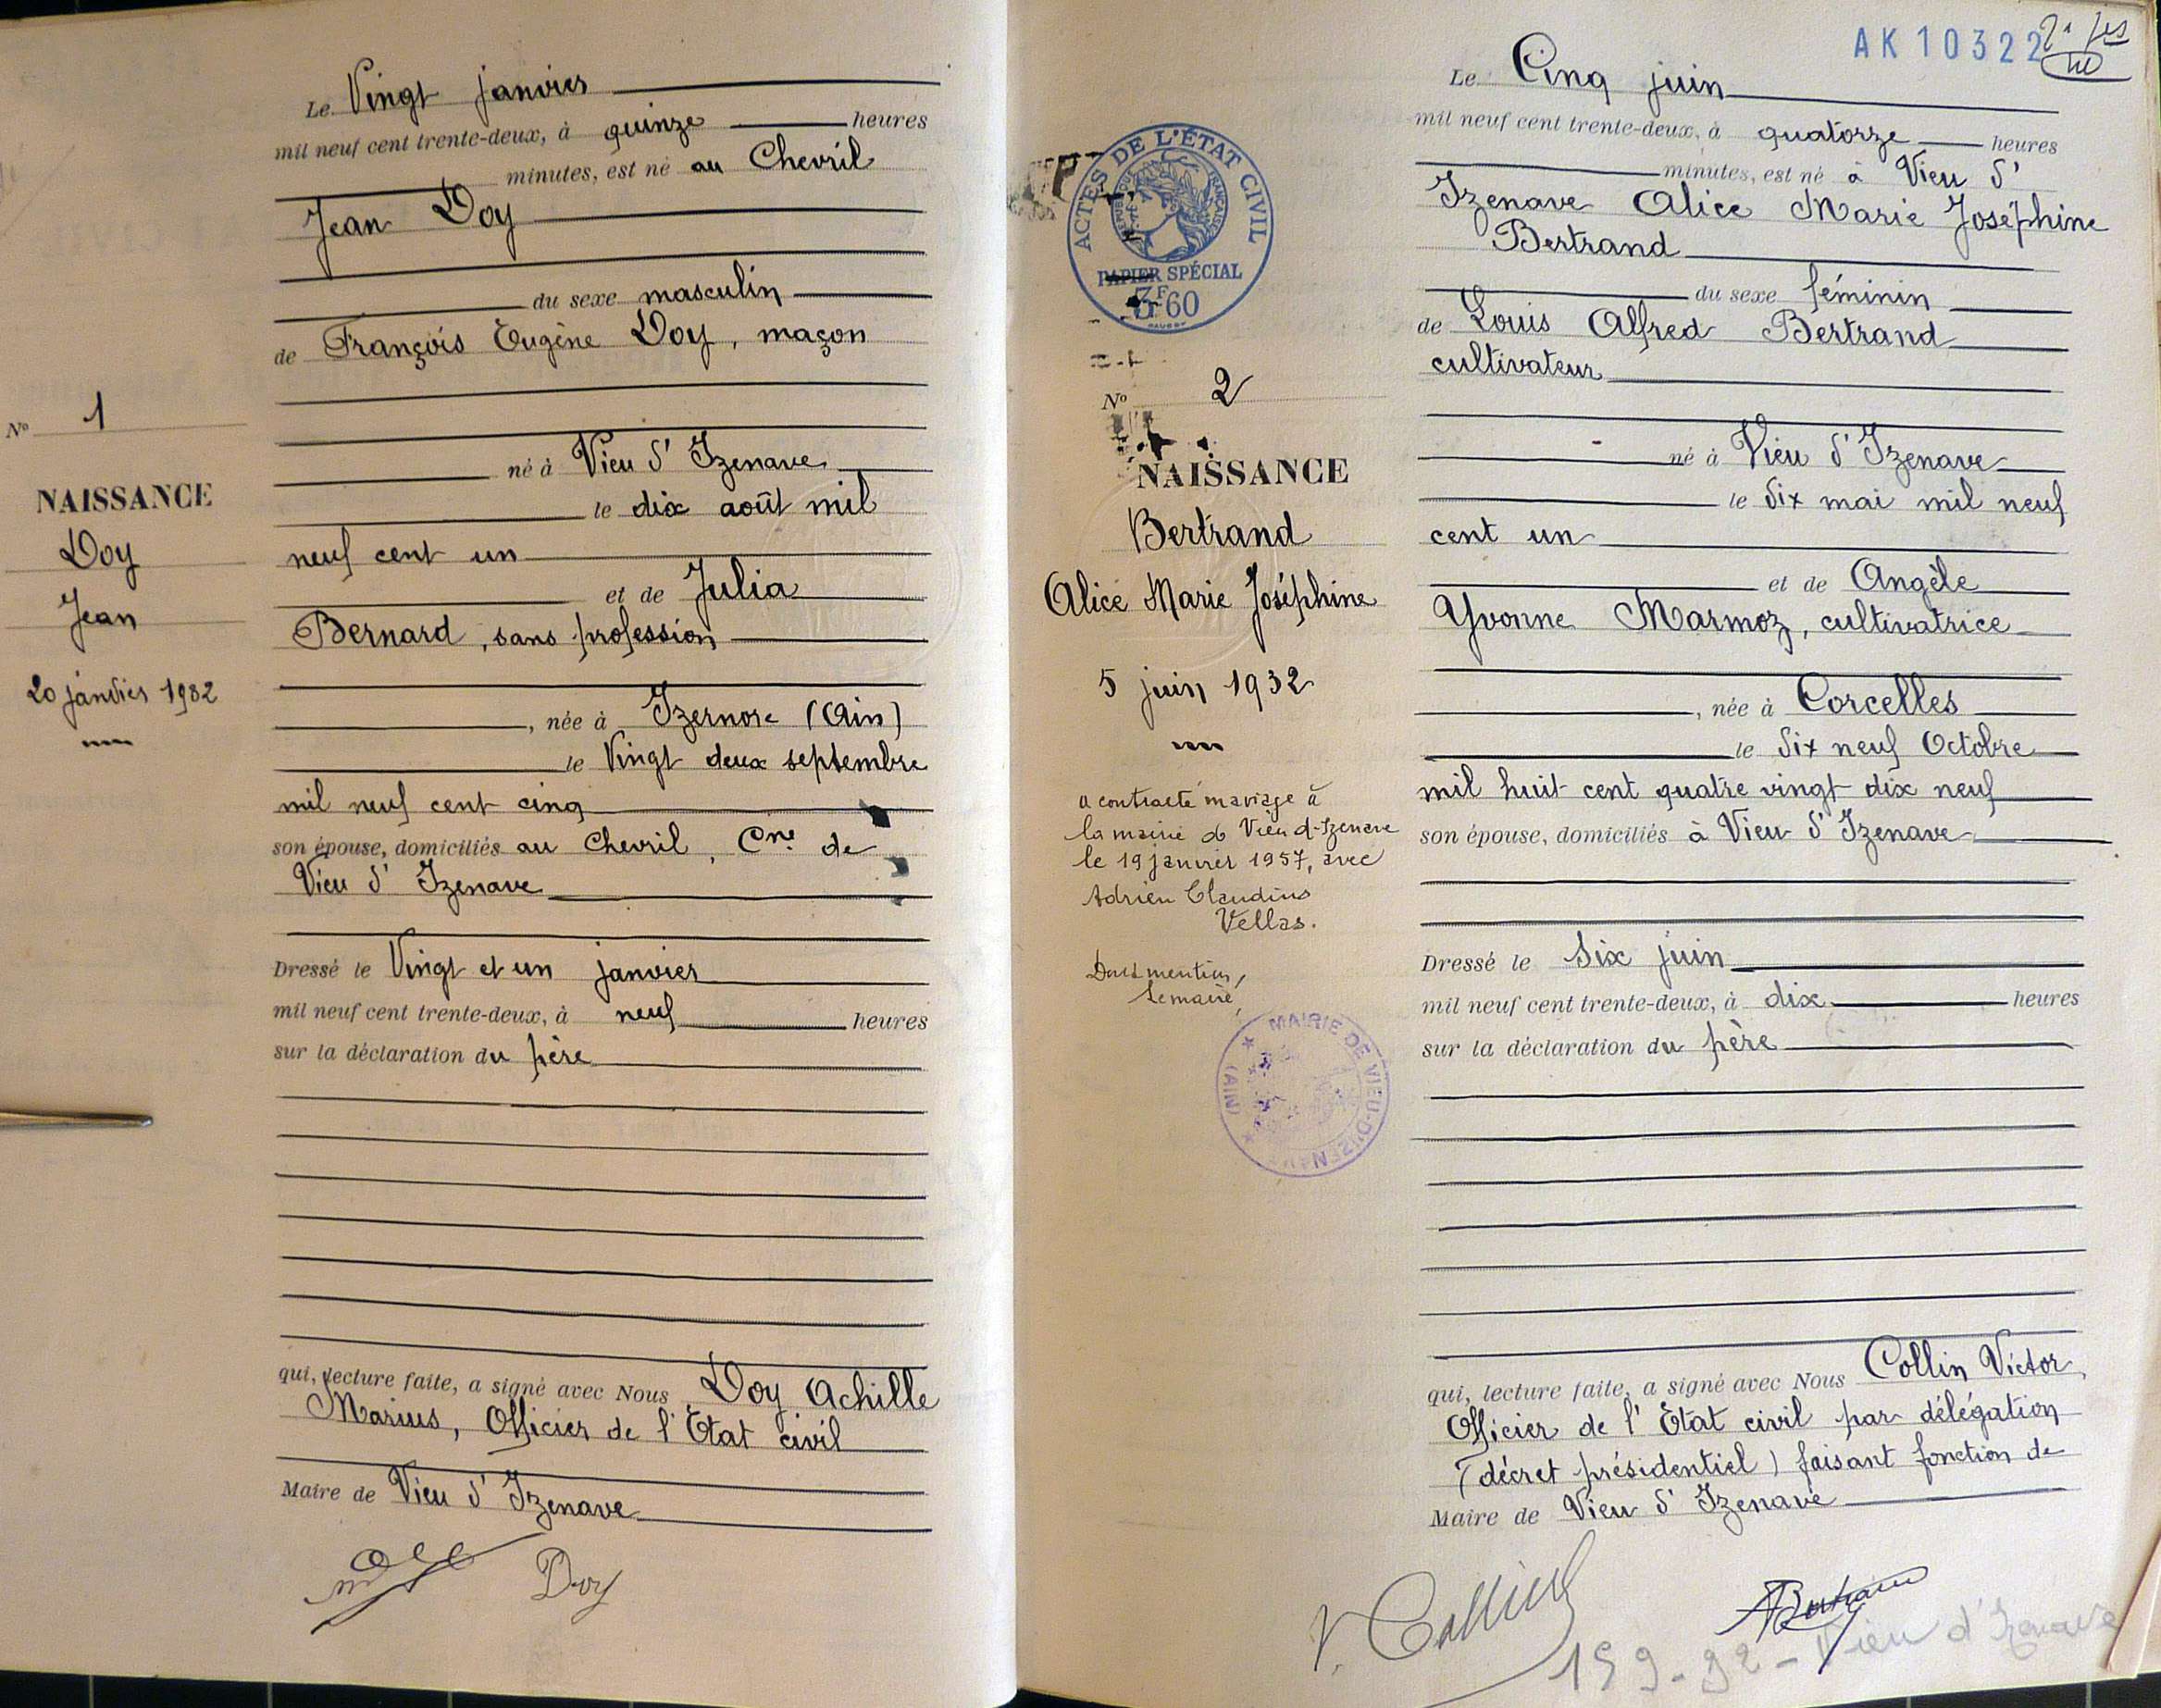 Le Vingt janvier
mil neuf cent trente-deux, à quinze heures
minutes, est né au Chevril
Jean Doy
du sexe masculin
de François Eugène Doy, maçon
né à Vieu d'Izenave
le dix août mil
neuf cent un
et de Julia
Bernard, sans profession
, née à Izernore (Ain)
le Vingt deux septembre
mil neuf cent cinq
son épouse, domiciliés au Chevril, Cne de
Vieu d'Izenave
Dressé le Vingt et un janvier
mil neuf cent trente-deux, à neuf heures
sur la déclaration du père
qui, lecture faite, a signé avec Nous Doy Achille
Marius, Officier de l'Etat civil
Maire de Vieu d'Izenave
Doy
No 1
NAISSANCE
Doy
Jean
20 janvier 1932
AK 10322
ACTES DE L'ÉTAT CIVIL
RÉPUBLIQUE FRANÇAISE
PAPIER SPÉCIAL
3F60
No 2
NAISSANCE
Bertrand
Alice Marie Joséphine
5 juin 1932
a contracté mariage à
la mairie de Vieu-d'Izenave
le 19 janvier 1957, avec
Adrien Claudius
Vellas.
Dont mention,
Le maire,
MAIRIE DE VIEU-D'IZENAVE
(AIN)
Le Cinq juin
mil neuf cent trente-deux, à quatorze heures
minutes, est né à Vieu d'
Izenave Alice Marie Joséphine
Bertrand
du sexe féminin
de Louis Alfred Bertrand
cultivateur
né à Vieu d'Izenave
le dix mai mil neuf
cent un
et de Angèle
Yvonne Marmoz, cultivatrice
, née à Corcelles
le dix neuf Octobre
mil huit cent quatre vingt dix neuf
son épouse, domiciliés à Vieu d'Izenave
Dressé le six juin
mil neuf cent trente-deux, à dix heures
sur la déclaration du père
qui, lecture faite, a signé avec Nous Collin Victor,
Officier de l'Etat civil par délégation
(décret présidentiel) faisant fonction de
Maire de Vieu d'Izenave
V. Collin
ABertrand
159-92-Vieu d'Izenave